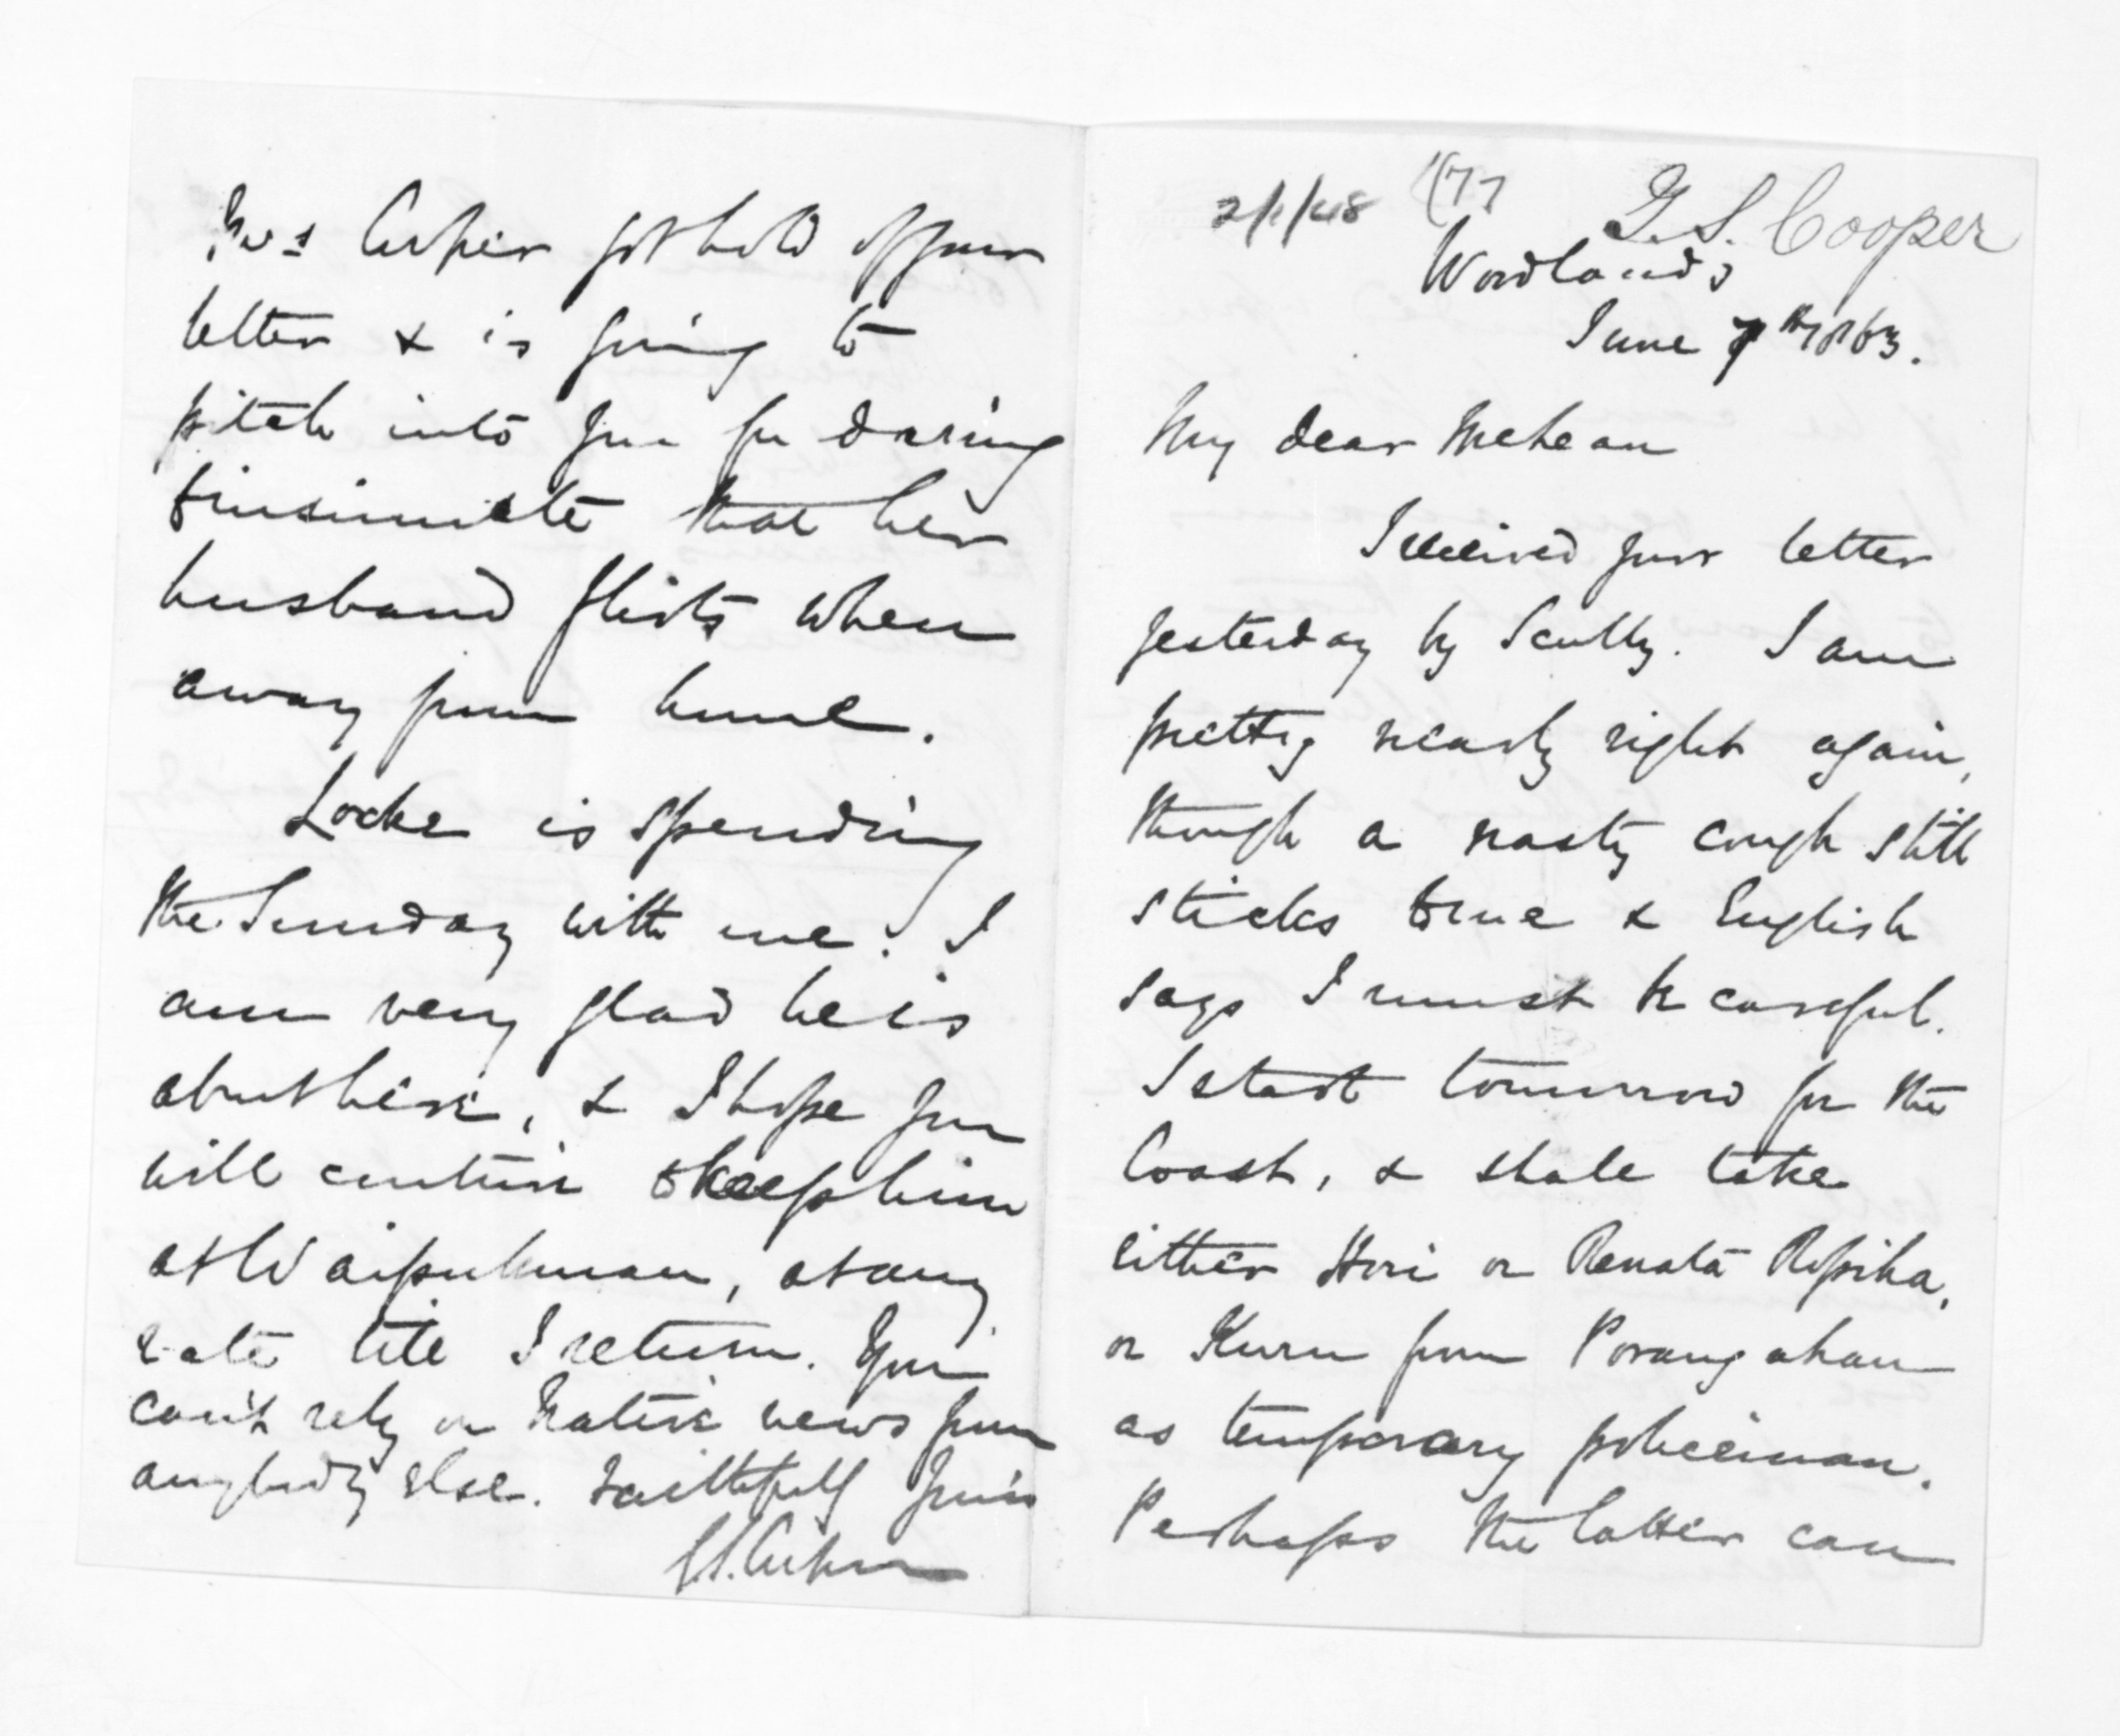 2/1/48 177 G. S. Cooper
Woodlands
June 7th 1863.
My dear McLean
I received your letter
yesterday by Scully. I am
pretty nearly right again,
though a nasty cough still
sticks to me & English
says I must be careful.
I start tomorrow for the
Coast, & shall take
either Hori or Renata Ropiha,
or Kuru from Porangahau
as temporary policeman.
Perhaps the latter can
Mrs Cooper got hold of your
letter & is going to
pitch into you for daring
to insinuate that her
husband flirts when
away from home.
Locke is spending
the Sunday with me. I
am very glad he is
about here, & I hope you
will continue to keep him
at Waipukurau, at any
rate till I return. You
can't rely on Native news from
anybody else. Faithfully yours
G.S. Cooper